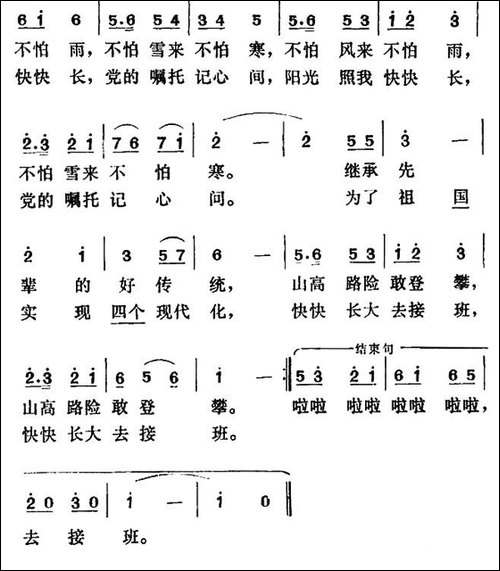 6 i 6 | 5·6 5 4 | 3 4 5 | 5·6 5 3 | i 2 3 |
不怕 雨，不怕 雪来 不怕 寒，不怕 风来 不怕 雨，
快快 长，党的 嘱托 记心 间，阳光 照我 快快 长，
2·3 2 i | 7 6 7 i | 2 — | 2 5 5 | 3 — |
不怕 雪来 不 怕 寒。 继承 先
党的 嘱托 记 心 问。 为了 祖 国
2 i | 3 5 7 | 6 — | 5·6 5 3 | i 2 3 |
辈 的 好 传 统， 山高 路险 敢登 攀，
实 现 四个 现代 化， 快快 长大 去接 班，
结束句
2·3 2 i | 6 5 6 | i — :‖ 5 3 2 i | 6 i 6 5 |
山高 路险 敢 登 攀。 啦啦 啦啦 啦啦 啦啦，
快快 长大 去 接 班。
2 0 3 0 | i — | i 0 ‖
去 接 班。